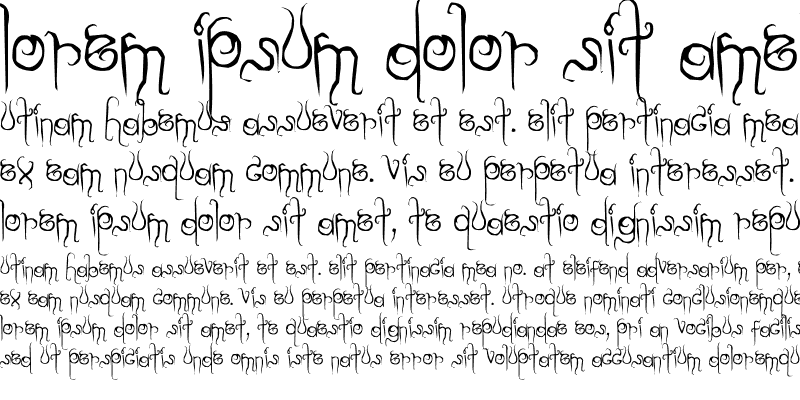 lorem ipsum dolor sit ame
utinam habemus assueverit et est. elit pertinacia mea
ex eam nusquam commune. vis eu perpetua interesset.
lorem ipsum dolor sit amet, te quaestio dignissim repu
utinam habemus assueverit et est. elit pertinacia mea no. at eleifend adversarium per, e
ex eam nusquam commune. vis eu perpetua interesset. utroque nominati conclusionemque
lorem ipsum dolor sit amet, te quaestio dignissim repudiandae eos, pri an vocibus facilis
sed ut perspiciatis unde omnis iste natus error sit voluptatem accusantium doloremqu